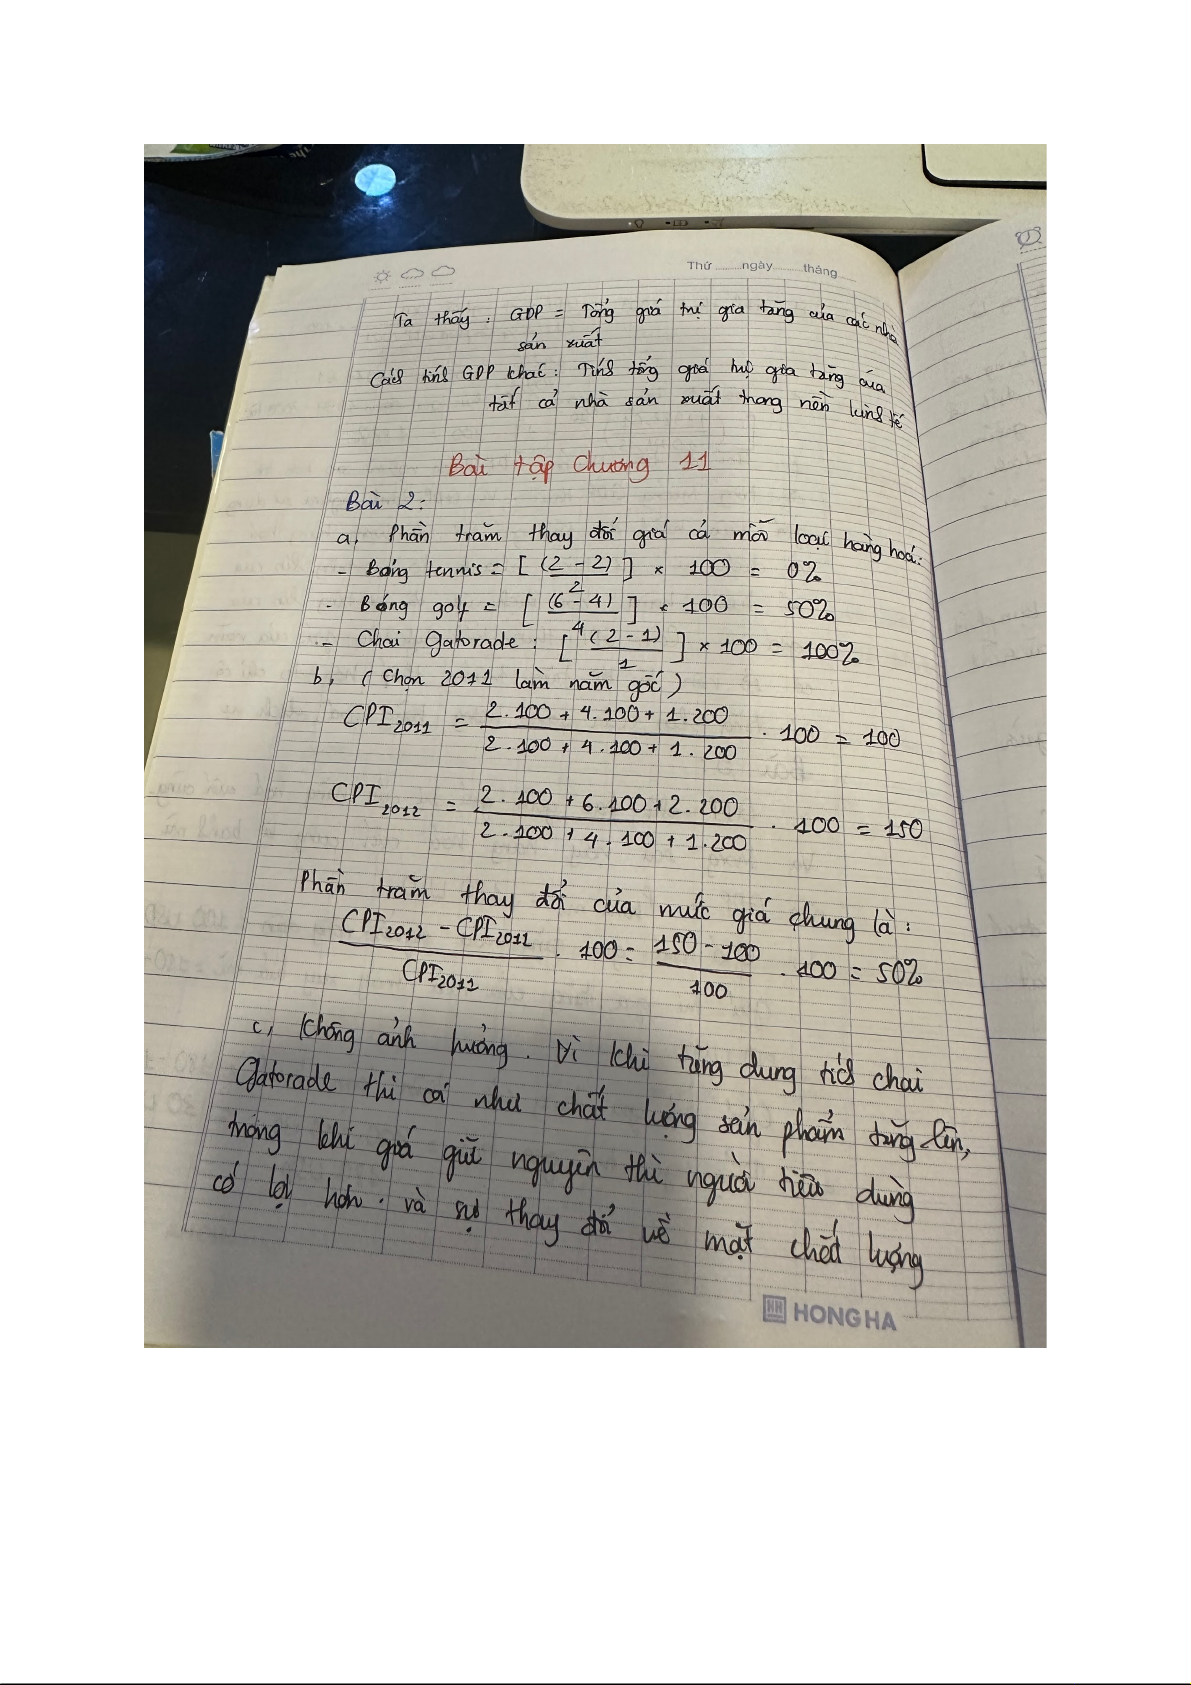 Thứ ngày tháng
Ta thấy: GDP = Tổng giá trị gia tăng của các nhà
sản xuất
Cách tính GDP khác: Tính tổng giá trị gia tăng của
tất cả nhà sản xuất trong nền kinh tế
Bài tập Chương 11
Bài 2:
a, Phần trăm thay đổi giá cả mỗi loại hàng hoá:
- Bóng tennis = [(2 - 2) / 2] × 100 = 0%
- Bóng golf = [(6 - 4) / 4] × 100 = 50%
- Chai Gatorade: [(2 - 1) / 1] × 100 = 100%
b, (Chọn 2011 làm năm gốc)
CPI2011 = (2.100 + 4.100 + 1.200) / (2.100 + 4.100 + 1.200) . 100 = 100
CPI2012 = (2.100 + 6.100 + 2.200) / (2.100 + 4.100 + 1.200) . 100 = 150
Phần trăm thay đổi của mức giá chung là:
(CPI2012 - CPI2011) / CPI2011 . 100 = (150 - 100) / 100 . 100 = 50%
c, Không ảnh hưởng. Vì khi tăng dung tích chai
Gatorade thì coi như chất lượng sản phẩm tăng lên,
trong khi giá giữ nguyên thì người tiêu dùng
có lợi hơn. và sự thay đổi về mặt chất lượng
HONG HA